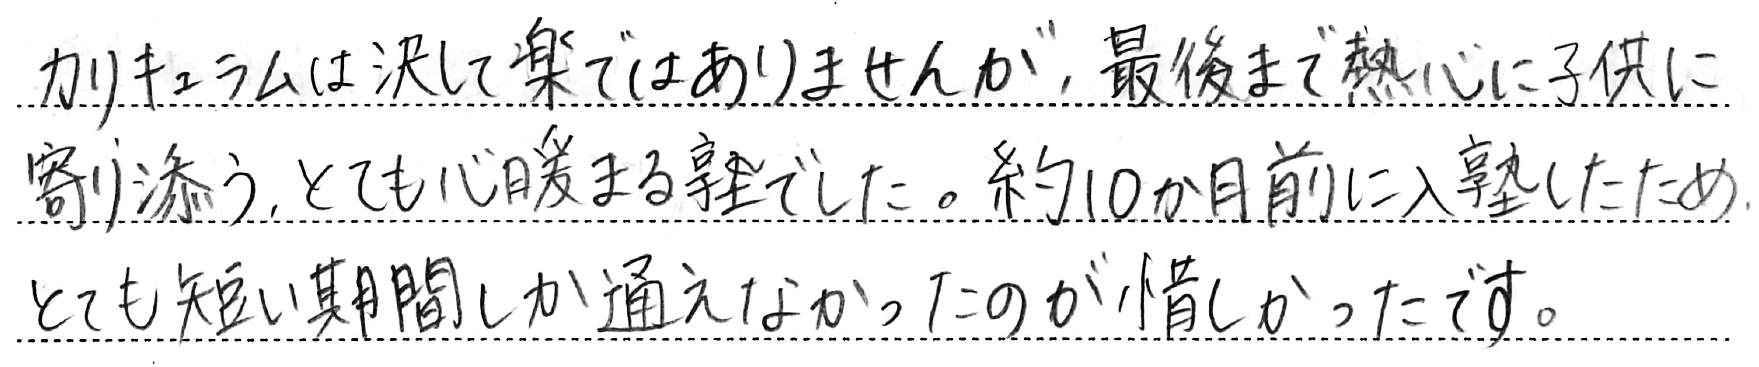 カリキュラムは決して楽ではありませんが、最後まで熱心に子供に
寄り添う、とても心暖まる塾でした。約10か月前に入塾したため、
とても短い期間しか通えなかったのが惜しかったです。